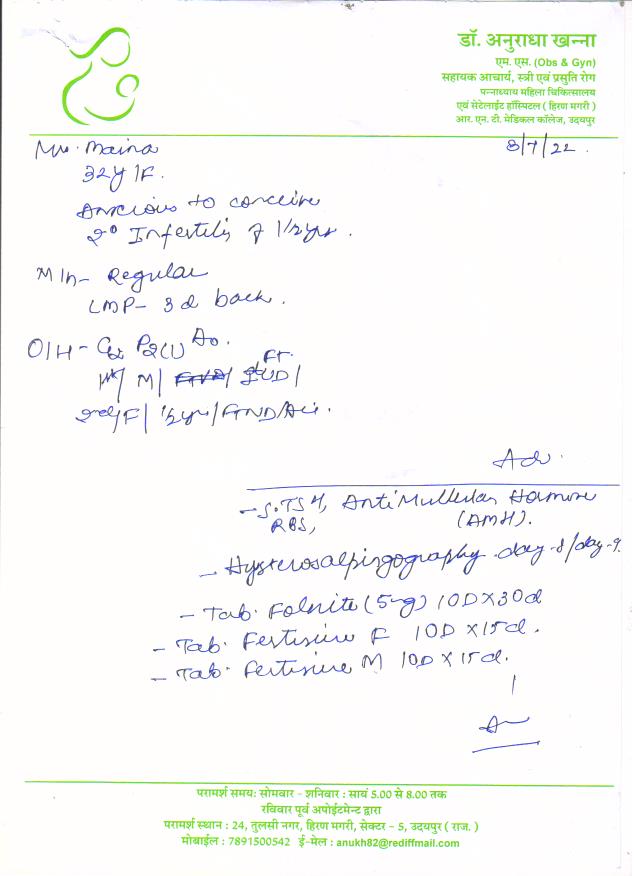 डॉ. अनुराधा खन्ना
एम. एस. (Obs & Gyn)
सहायक आचार्य, स्त्री एवं प्रसुति रोग
पन्नाध्याय महिला चिकित्सालय
एवं सेटेलाईट हॉस्पिटल ( हिरण मगरी )
आर. एन. टी. मेडिकल कॉलेज, उदयपुर
Mrs. Maina
8/7/22
32y/F.
Anxious to conceive
2° Infertility of 1½ yrs.
M/h- Regular
LMP- 3d back.
O/H- G2 P2(1) A0.
M / IUD /
2nd/F/ /FTND/
Adv.
- S. TSH, Anti Mullerian Hormone
RBS, (AMH).
- Hysterosalpingography day-8/day-9.
- Tab. Folnite (5mg) 1OD X 30d
- Tab. Fertisure F 1OD X 15d.
- Tab. Fertisure M 1OD X 15d.
परामर्श समय: सोमवार - शनिवार : सायं 5.00 से 8.00 तक
रविवार पूर्व अपोईटमेन्ट द्वारा
परामर्श स्थान : 24, तुलसी नगर, हिरण मगरी, सेक्टर - 5, उदयपुर ( राज. )
मोबाईल : 7891500542 ई-मेल : anukh82@rediffmail.com